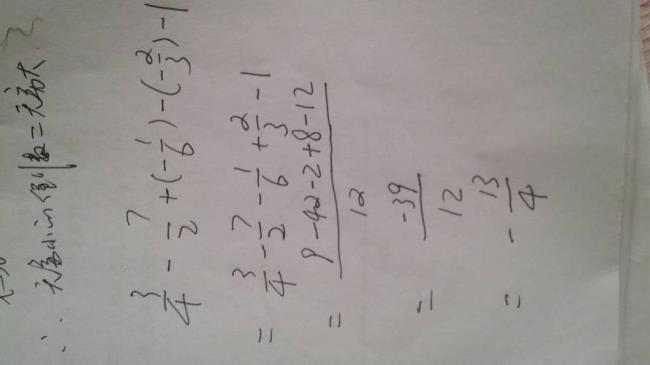 ∴ 无穷小的倒数=无穷大
3/4 - 7/2 + (-1/6) - (-2/3) - 1
= 3/4 - 7/2 - 1/6 + 2/3 - 1
= (9-42-2+8-12)/12
= -39/12
= -13/4